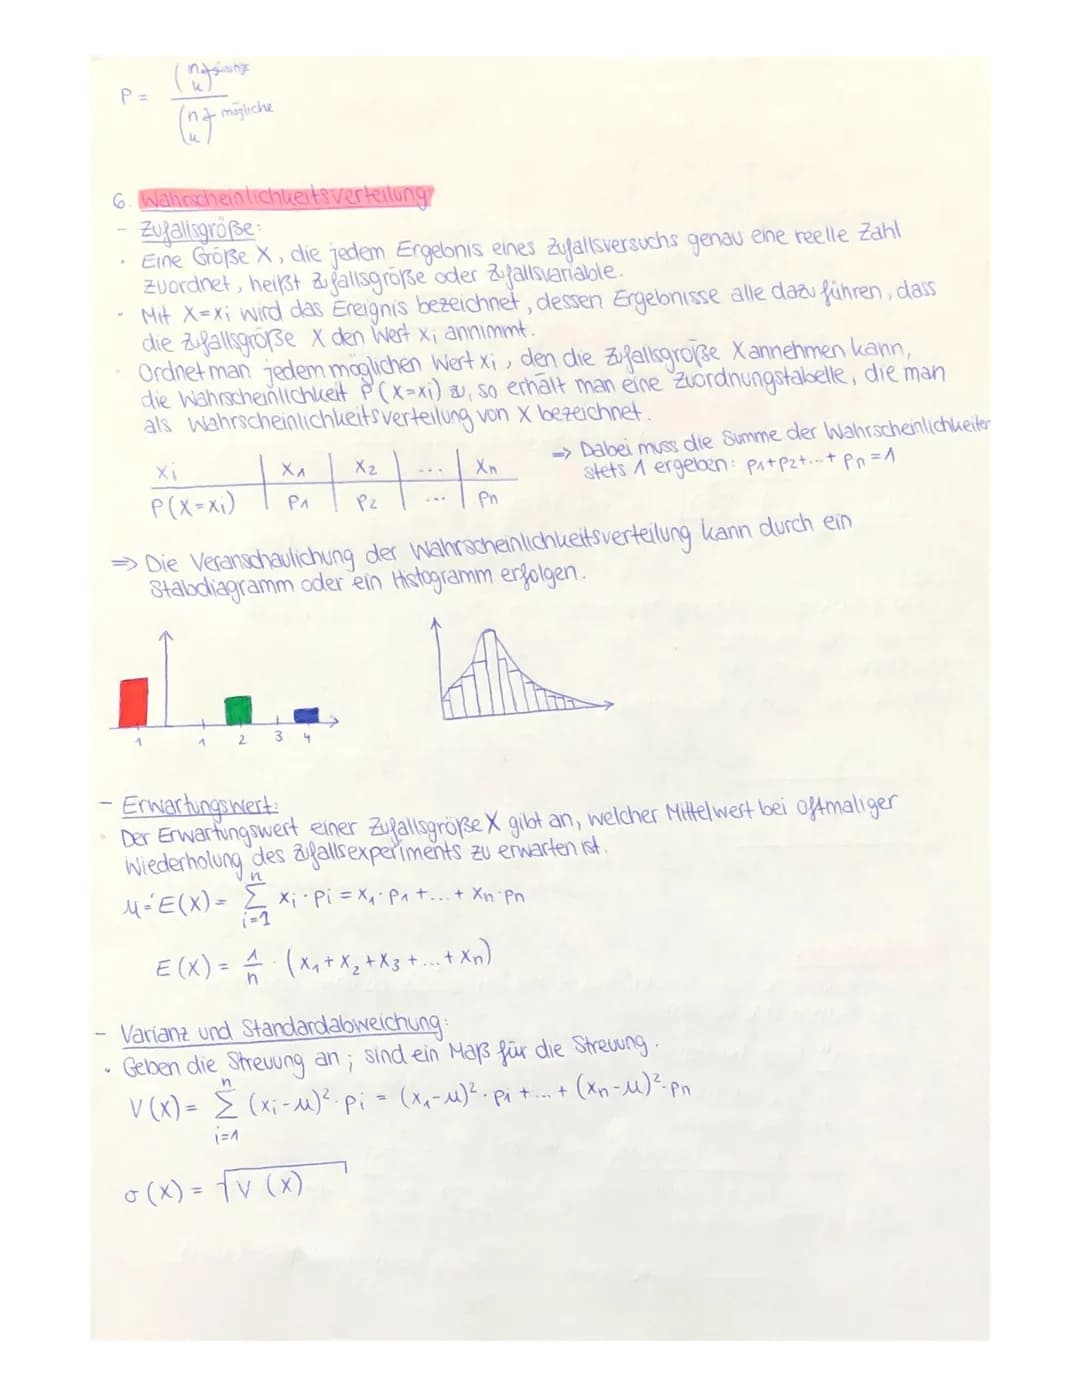 P = (n über k) günstige / (n über k) mögliche
6. Wahrscheinlichkeitsverteilung
- Zufallsgröße:
· Eine Größe X, die jedem Ergebnis eines Zufallsversuchs genau eine reelle Zahl
zuordnet, heißt Zufallsgröße oder Zufallsvariable.
· Mit X=xi wird das Ereignis bezeichnet, dessen Ergebnisse alle dazu führen, dass
die Zufallsgröße X den Wert xi annimmt.
· Ordnet man jedem möglichen Wert xi, den die Zufallsgröße X annehmen kann,
die Wahrscheinlichkeit P(X=xi) zu, so erhält man eine Zuordnungstabelle, die man
als Wahrscheinlichkeitsverteilung von X bezeichnet.
xi | x1 | x2 | ... | xn
P(X=xi) | p1 | p2 | ... | pn
=> Dabei muss die Summe der Wahrscheinlichkeiten
stets 1 ergeben: p1+p2+...+pn=1
=> Die Veranschaulichung der Wahrscheinlichkeitsverteilung kann durch ein
Stabdiagramm oder ein Histogramm erfolgen.
1 1 2 3 4
- Erwartungswert:
· Der Erwartungswert einer Zufallsgröße X gibt an, welcher Mittelwert bei oftmaliger
Wiederholung des Zufallsexperiments zu erwarten ist.
μ=E(X) = Σ(i=1 bis n) xi · pi = x1 · p1 + ... + xn · pn
E(X) = 1/n · (x1 + x2 + x3 + ... + xn)
- Varianz und Standardabweichung:
· Geben die Streuung an; sind ein Maß für die Streuung.
V(X) = Σ(i=1 bis n) (xi-μ)² · pi = (x1-μ)² · pi + ... + (xn-μ)² · pn
σ(X) = √V(X)